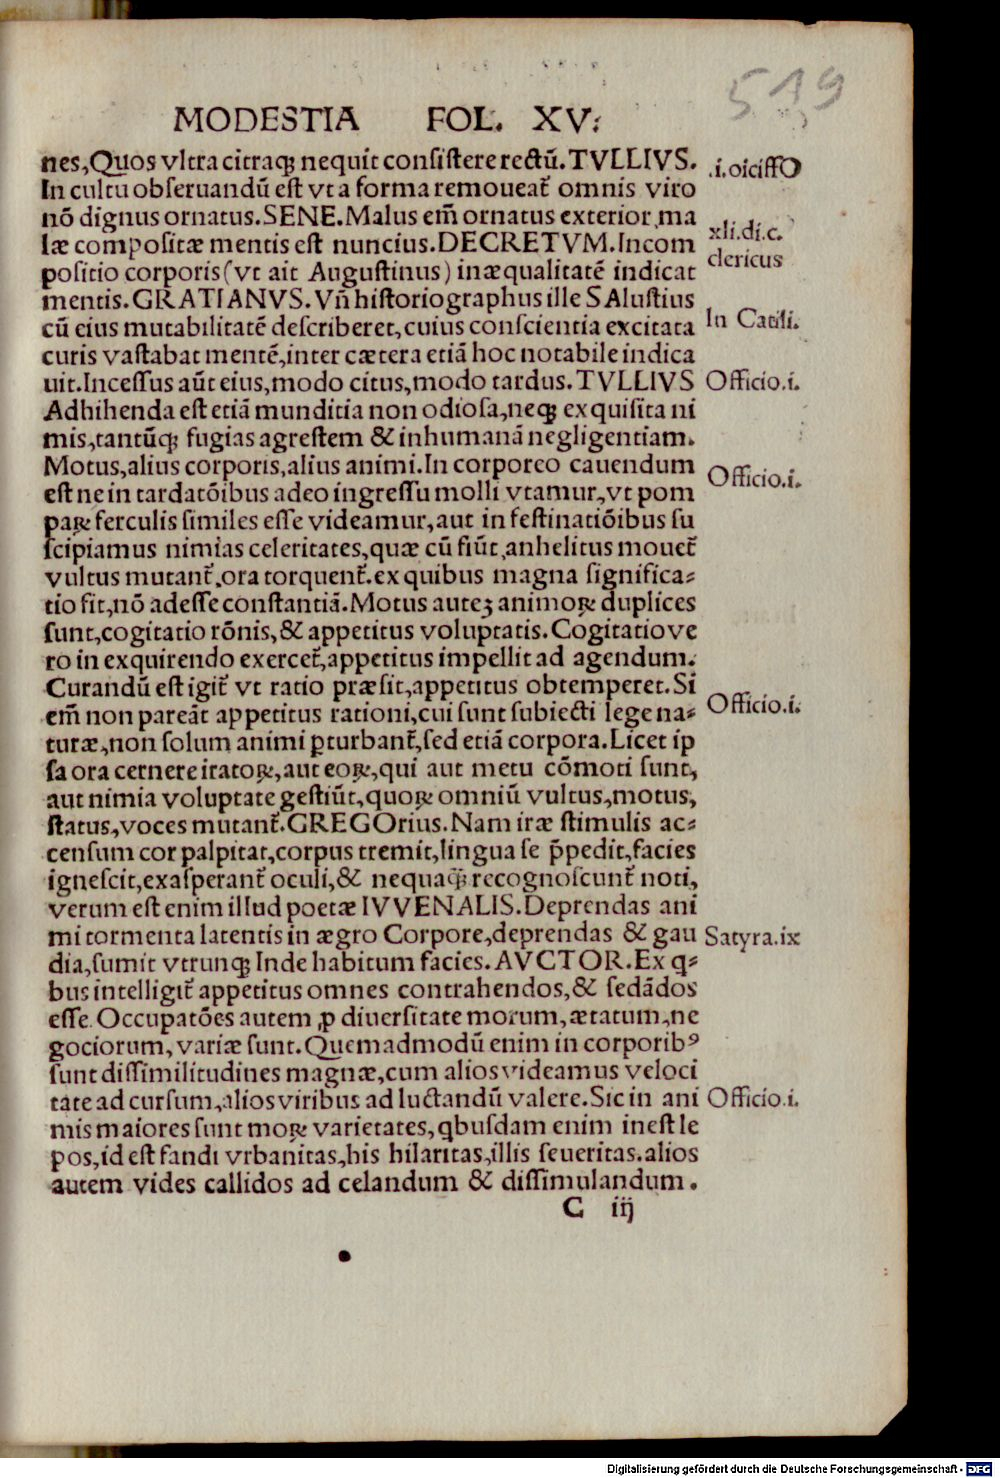 519
MODESTIA FOL. XV:
nes,Quos vltra citraqꝫ nequit consistere rectū. TVLLIVS.
.i.oiciffO
In cultu obseruandū est vt a forma remoueat̃ omnis viro
nō dignus ornatus. SENE. Malus em̄ ornatus exterior, ma
læ compositæ mentis est nuncius. DECRETVM. Incom
xli.di.c.
clericus
positio corporis (vt ait Augustinus) inæqualitatē indicat
mentis. GRATIANVS. Vñ historiographus ille SAlustius
cū eius mutabilitatē describeret, cuius conscientia excitata
In Catili.
curis vastabat mentē, inter cætera etiā hoc notabile indica
uit. Incessus aūt eius, modo citus, modo tardus. TVLLIVS
Officio.i.
Adhihenda est etiā munditia non odiosa, neqꝫ exquisita ni
mis, tantūqꝫ fugias agrestem & inhumanā negligentiam.
Motus, alius corporis, alius animi. In corporeo cauendum
Officio.i.
est ne in tardatōibus adeo ingressu molli vtamur, vt pom
paꝝ ferculis similes esse videamur, aut in festinatiōibus su
scipiamus nimias celeritates, quæ cū fiūt, anhelitus mouet̃
vultus mutant̃. ora torquent̃. ex quibus magna significa⸗
tio fit, nō adesse constantiā. Motus auteꝫ animoꝝ duplices
sunt, cogitatio rōnis, & appetitus voluptatis. Cogitatio ve
ro in exquirendo exercet̃, appetitus impellit ad agendum.
Curandū est igit̃ vt ratio præsit, appetitus obtemperet. Si
em̄ non pareāt appetitus rationi, cui sunt subiecti lege na⸗
Officio.i.
turæ, non solum animi ꝑturbant̃, sed etiā corpora. Licet ip
sa ora cernere iratoꝝ, aut eoꝝ, qui aut metu cōmoti sunt,
aut nimia voluptate gestiūt, quoꝝ omniū vultus, motus,
status, voces mutant̃. GREGOrius. Nam iræ stimulis ac⸗
censum cor palpitat, corpus tremit, lingua se p̄pedit, facies
ignescit, exasperant̃ oculi, & nequaq̃ꝫ recognoscunt̃ noti,
verum est enim illud poetæ IVVENALIS. Deprendas ani
mi tormenta latentis in ægro Corpore, deprendas & gau
Satyra.ix
dia, sumit vtrunqꝫ Inde habitum facies. AVCTOR. Ex q⸗
bus intelligit̃ appetitus omnes contrahendos, & sedādos
esse. Occupatōes autem ꝓ diuersitate morum, ætatum, ne
gociorum, variæ sunt. Quemadmodū enim in corporibꝰ
sunt dissimilitudines magnæ, cum alios videamus veloci
tate ad cursum, alios viribus ad luctandū valere. Sic in ani
Officio.i.
mis maiores sunt moꝝ varietates, qbusdam enim inest le
pos, id est fandi vrbanitas, his hilaritas, illis seueritas. alios
autem vides callidos ad celandum & dissimulandum.
C iij
Digitalisierung gefördert durch die Deutsche Forschungsgemeinschaft - DFG